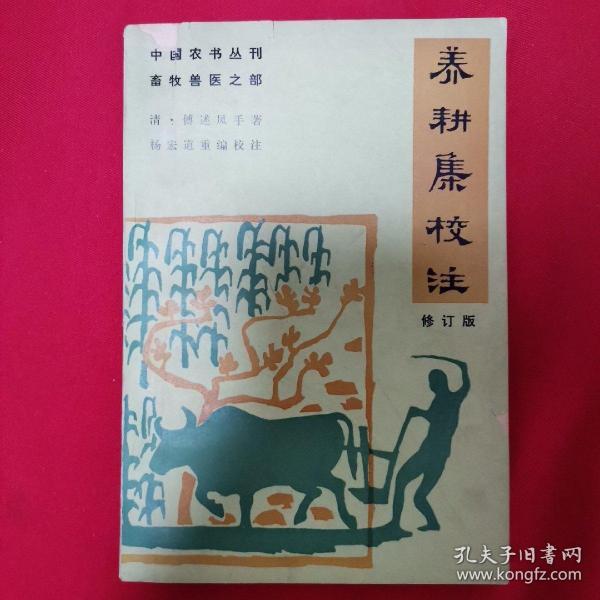 中国农书丛刊
畜牧兽医之部
清·傅述凤手著
杨宏道重编校注
养耕集校注
修订版
孔夫子旧书网
www.kongfz.com